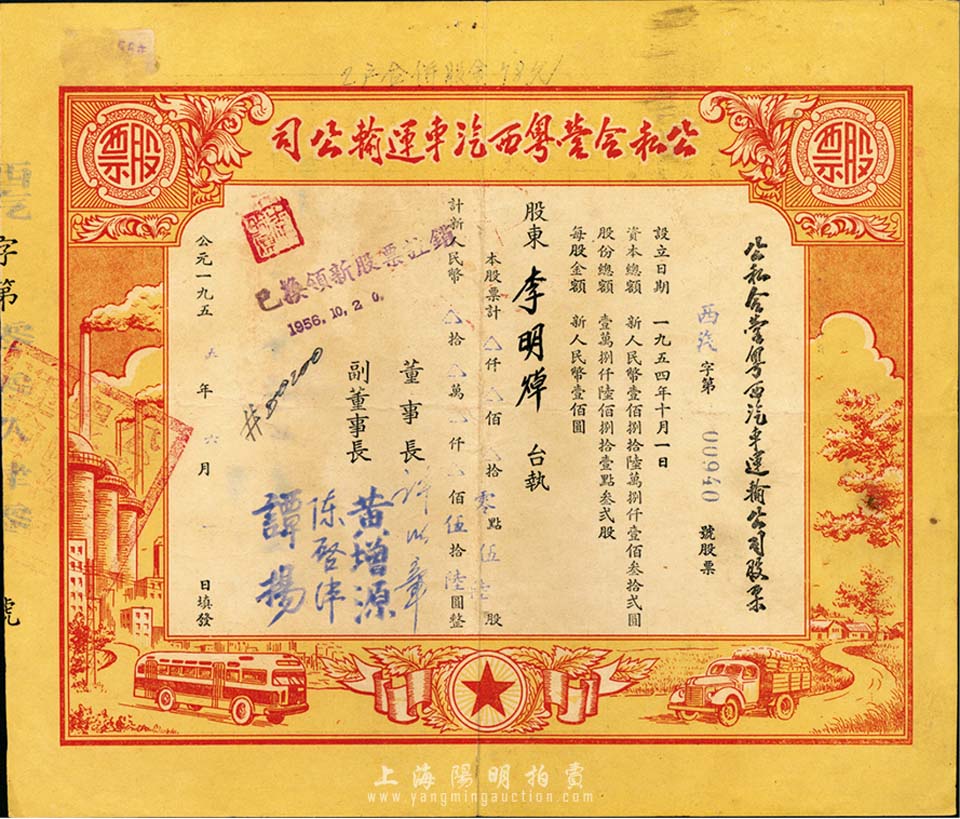 股票
公私合營粵西汽車運輸公司
股票
公私合營粵西汽車運輸公司股票
西汽字第 000940 號股票
設立日期 一九五四年十月一日
資本總額 新人民幣壹佰捌拾陸萬捌仟壹佰叁拾弍圓
股份總額 壹萬捌仟陸佰捌拾壹點叁弍股
每股金額 新人民幣壹佰圓
股東 李明焯 台執
本股票計△仟△佰△拾零點伍陸股
計新人民幣△拾△萬△仟△佰伍拾陸圓整
董事長
副董事長
黃增源
譚揚
已換領新股票註銷
1956.10.20.
公元一九五五年六月一日填發
字第
號
上海陽明拍賣
www.yangmingauction.com